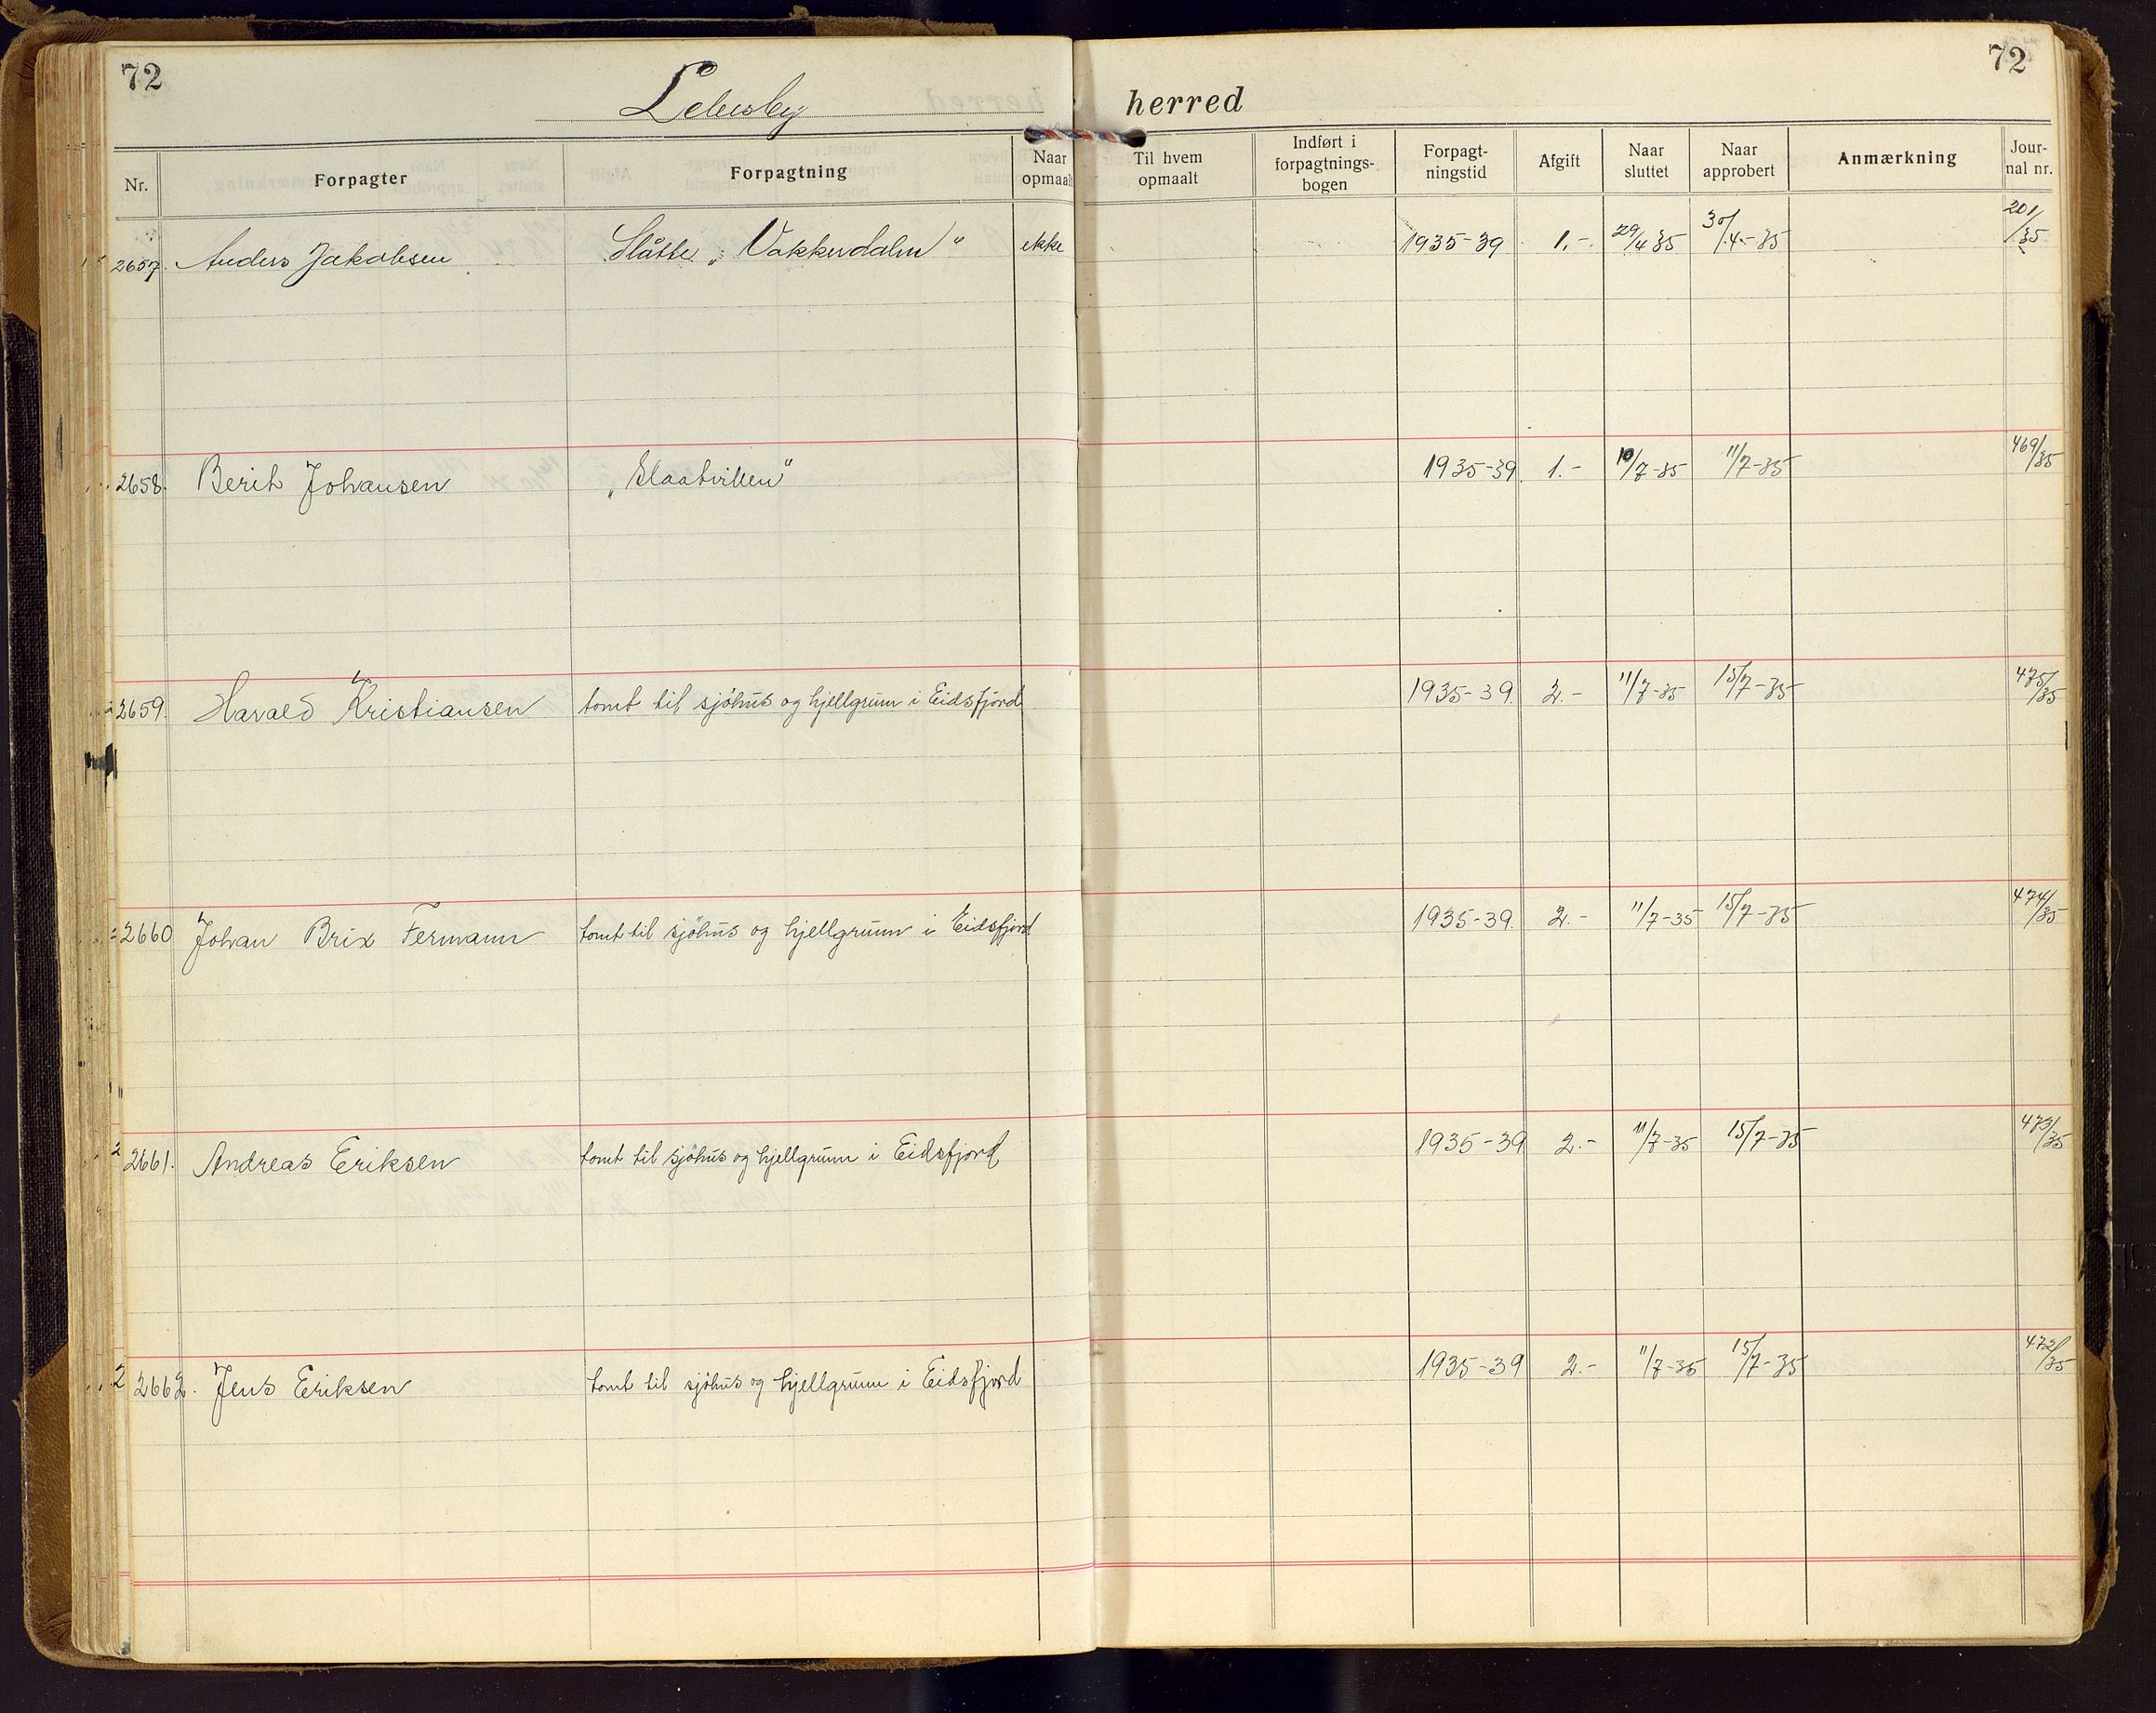 72
72
Lebesby herred
Nr. Forpagter Forpagtning Naar opmaalt Til hvem opmaalt Indført i forpagtnings-bogen Forpagt-ningstid Afgift Naar sluttet Naar approbert Anmærkning Jour-nal nr.
2657. Anders Jakobsen Slåtte „Vakkerdalen“ ikke 1935-39 1.- 29/4 35 30/4-35 201/35
2658. Berit Johansen 1935-39. 1.- 10/7-35 11/7-35 469/35
2659. Harald Kristiansen tomt til sjøhus og hjellgrunn i Eidsfjord 1935-39. 2.- 11/7-35 15/7-35 475/35
2660 Johan Brix Fermann tomt til sjøhus og hjellgrunn i Eidsfjord 1935-39. 2.- 11/7-35 15/7-35 474/35
2661. Andreas Eriksen tomt til sjøhus og hjellgrunn i Eidsfjord 1935-39 2.- 11/7-35 15/7-35 473/35
2662. Jens Eriksen tomt til sjøhus og hjellgrunn i Eidsfjord 1935-39 2.- 11/7-35 15/7-35 472/35